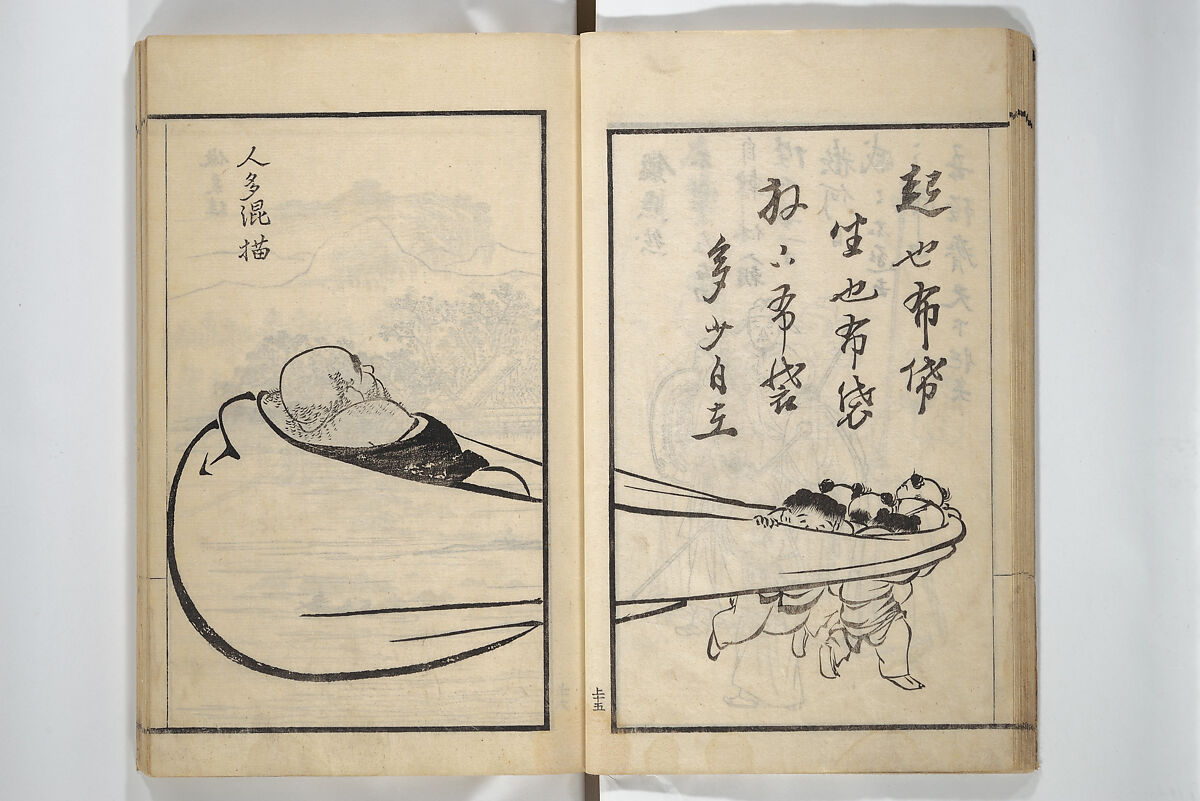 起也布袋
坐也布袋
放下布袋
多少自在
人多混描
上十五